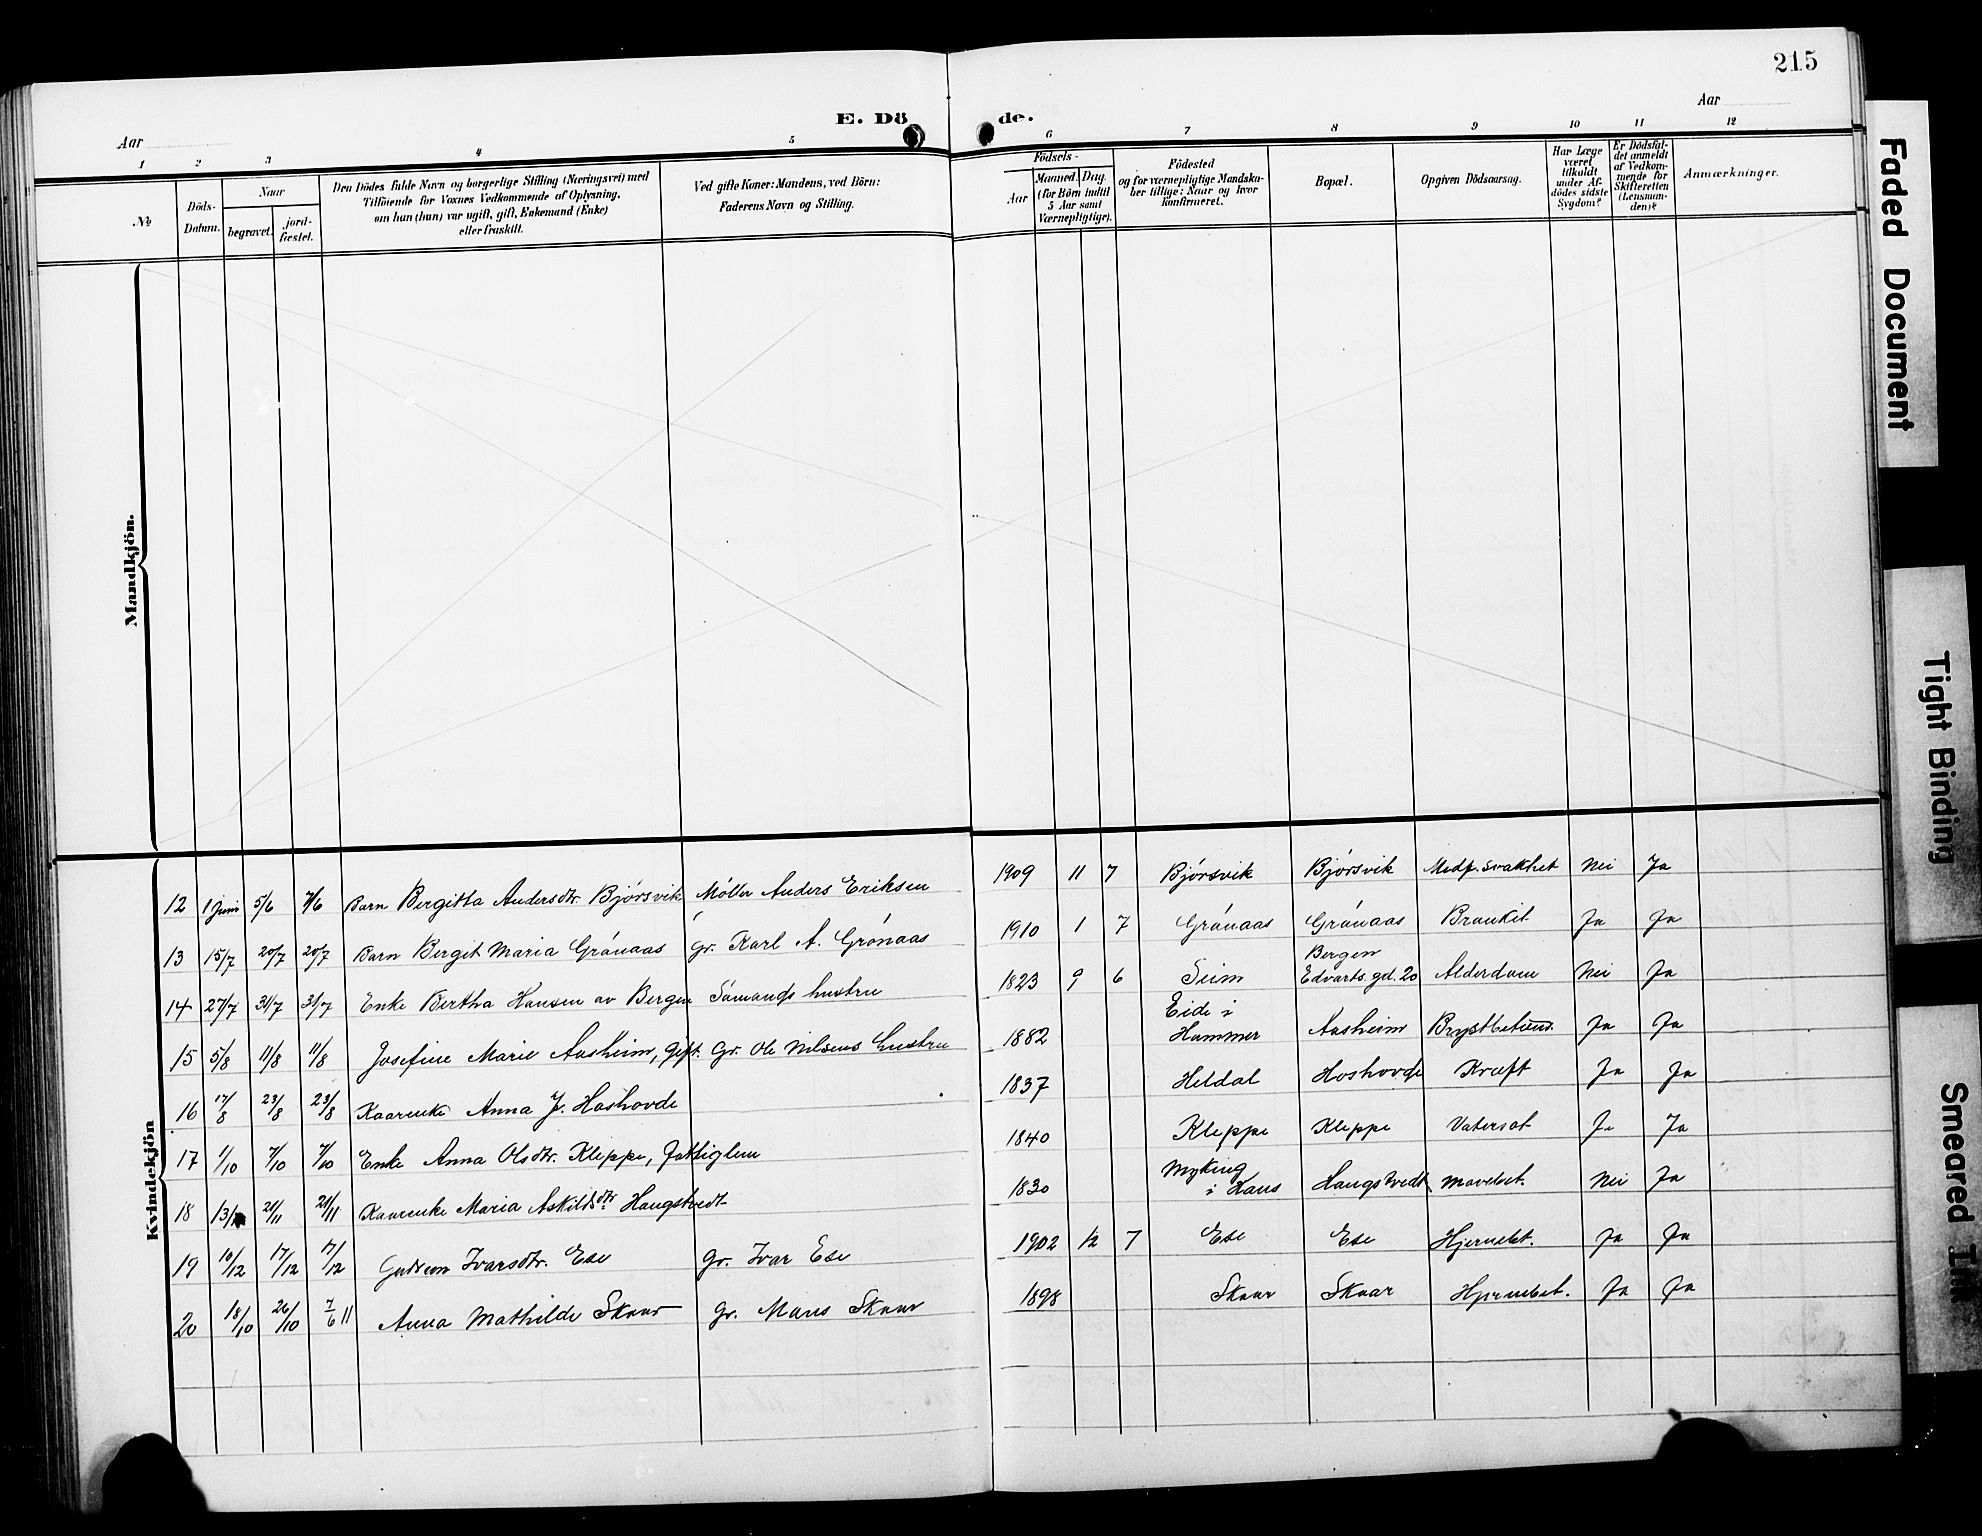 215
Aar
E. Dö de.
Aar
1 2 3 4 5 6 7 8 9 10 11 12
№
Döds-Datum.
Naar
begravet.
jord-fæstet.
Den Dödes fulde Navn og borgerlige Stilling (Næringsvei) med
Tilföiende for Voxnes Vedkommende af Oplysning,
om han (hun) var ugift, gift, Enkemand (Enke)
eller fraskilt.
Ved gifte Koner: Mandens, ved Börn:
Faderens Navn og Stilling.
Födsels-
Aar
Maaned. Dag.
(for Börn indtil
5 Aar samt
Værnepligtige).
Födested
og for værnepligtige Mandska-
ber tillige: Naar og hvor
konfirmeret.
Bopæl.
Opgiven Dödsaarsag.
Har Læge
været
tilkaldt
under Af-
dödes sidste
Sygdom?
Er Dödsfal-
det anmeldt
af Vedkom-
mende for
Skifteretten
(Lensman-
den)?
Anmærkninger.
Mandkjön.
Kvindekjön
12 1 Juni 5/6 7/6 Barn Bergitta Andersdtr. Bjórsvik Møller Anders Eriksen 1909 11 7 Bjórsvik Bjórsvik Medf. svakhet Nei Ja
13 15/7 20/7 20/7 Barn Bergit Maria Grónaas Gr. Karl A. Grónaas 1910 1 7 Grónaas Grónaas Ja Ja
14 27/7 31/7 31/7 Enke Bertha Hansen av Bergen Sómands hustru 1823 9 6 Seim Bergen Edvarts gd. 20 Alderdom Nei Ja
15 5/8 11/8 11/8 Josefine Marie Aasheim, gift. Gr. Ole Nilsens hustru 1882 Eide i Hammer Aasheim Ja Ja
16 17/8 23/8 23/8 Kaarenke Anna J. Hoshovde 1837 Heldal Hoshovde Kræft Ja Ja
17 1/10 7/10 7/10 Enke Anna Olsdtr. Kleppe, fattiglem 1840 Kleppe Kleppe Vatersot Ja Ja
18 13/11 21/11 21/11 Kaarenke Maria Askildsdtr Haugstvedt 1830 Myking i Haus Haugstvedt Mavebet. Nei Ja
19 10/12 17/12 17/12 Gudrun Ivarsdtr. Ese Gr. Ivar Ese 1902 12 7 Ese Ese Hjernebet. Ja Ja
20 18/10 26/10 7/6 11 Anna Mathilde Skaar Gr. Mans Skaar 1898 Skaar Skaar Hjernebet. Ja Ja
Faded Document
Tight Binding
Smeared Ink